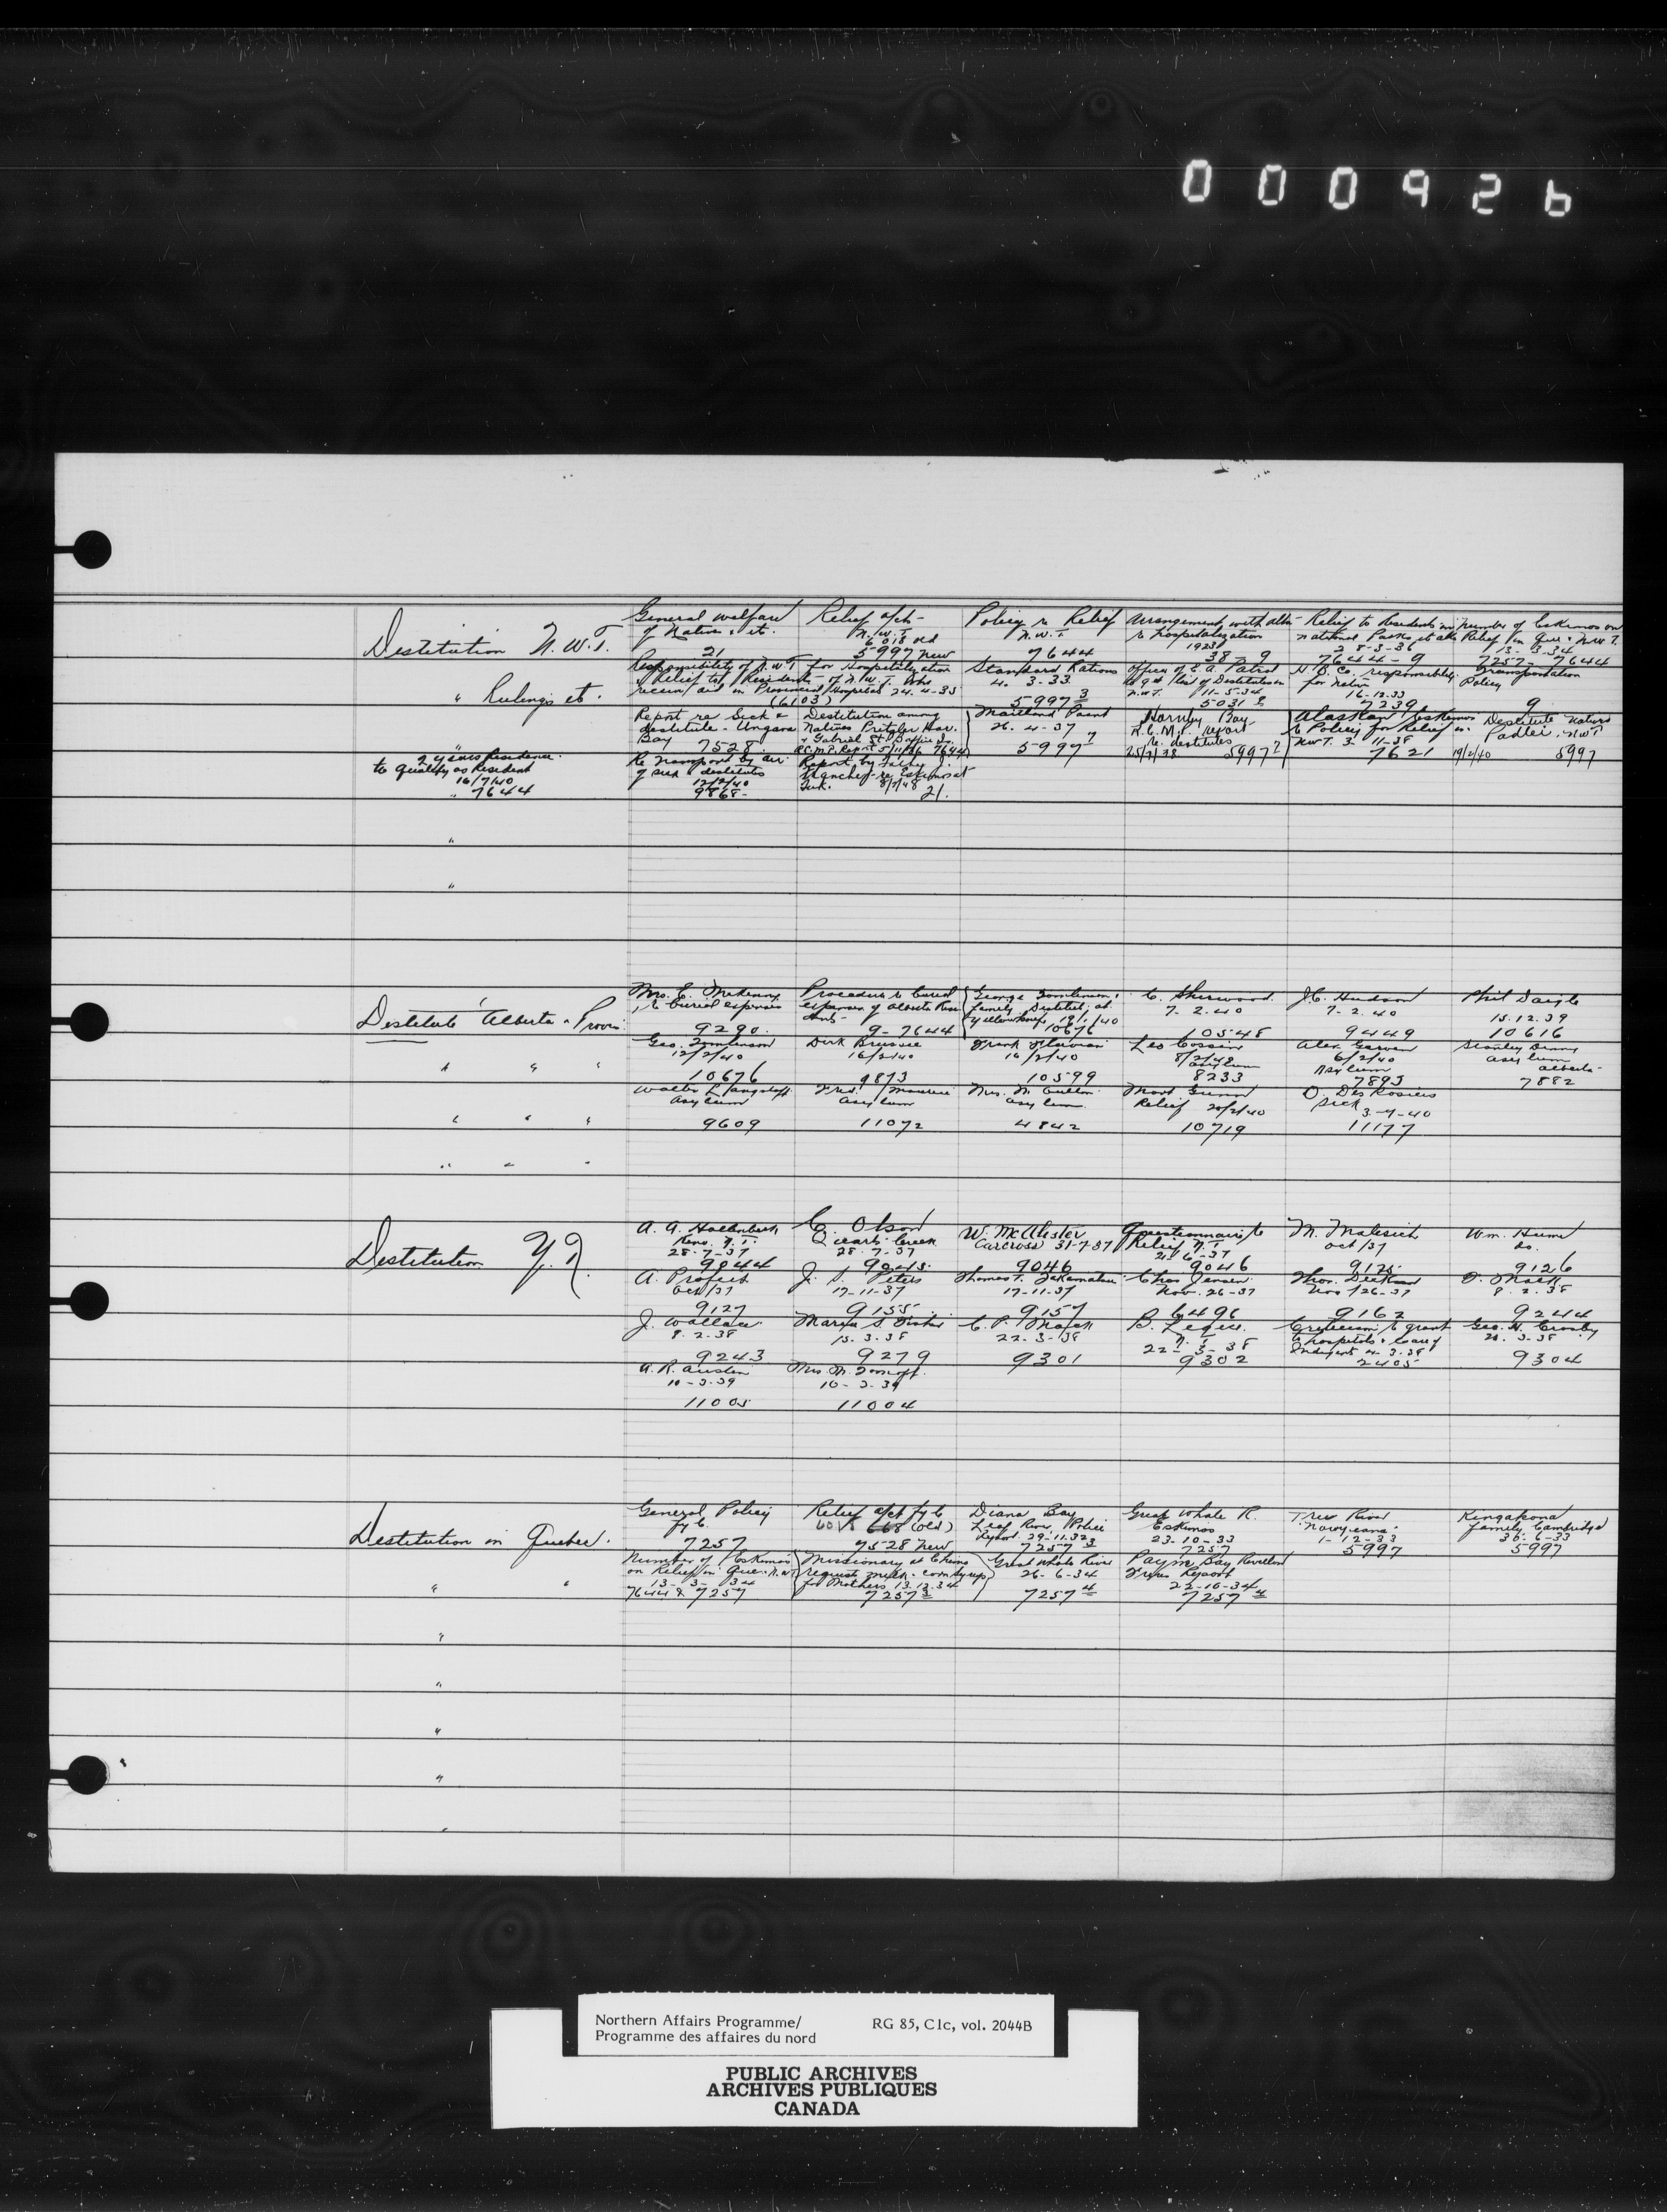 000926
Destitution N.W.T.
General welfare
of Natives etc.
21
Relief
N.W.T.
6018 old
5997 New
Policy re Relief
N.W.T.
7644
Arrangement with
re hospitalization
1923
38-9
Relief to Residents in
national Parks
28-3-36
7644-9
Number of Eskimos on
Relief in Que. & N.W.T.
13-3-34
7257-7644
" Rulings etc.
Responsibility of N.W.T. for Hospitalization
& Relief to Residents of N.W.T. who
receive aid in Provincial Hospitals 24-4-33
(6103)
Standard Rations
4-3-33
5997 3
Officer of E.A. Patrol
list of Destitutes in
N.W.T. 11-5-34
5031
H.B.Co. responsibility
for Natives
16-12-33
7239
Transportation
Policy
9
Report re Sick &
destitute - Ungava
Bay 7528
Destitution among
Natives Pritzler Har.
& Gabriel St. Baffin Is.
R.C.M.P. Report 5/11/36 7644
Maitland Point
26-4-37
5997 7
Hornby Bay
R.C.M.P. report
re destitutes
25/7/38 5997 7
Alaskan Eskimos
re Policy for Relief in
NWT. 3-11-38
7621
Destitute Natives
Padlei NWT
19/2/40 5997
2 years Residence
to Qualify as Resident
16/7/40
7644
Re Transport by air
of sick & destitutes
12/2/40
9868-
Report by
re Eskimos at
Tuk. 8/7/48
21.
"
"
Destitute Alberta - Provin.
Mrs. E. McKenny
re burial expenses
9290.
Procedure re burial
expenses of
9-7644
George Tomlinson &
family Destitute at
Yellowknife 19/1/40
10676
C. Sherwood
7-2-40
10548
J.C. Hudson
7-2-40
9449
Phil Daigle
15.12.39
10616
" " "
Geo. Tomlinson
12/2/40
10676
Dirk
16/2/40
9873
Frank
16/2/40
10599
Leo
8/2/40
asylum
8233
Alex. Garven
6/2/40
Asylum
7893
Stanley
asylum
Alberta
7882
" " "
Walter Langstaff
asylum
9609
Fred
asylum
11072
Mrs. M.
asylum
4842
Relief 20/2/40
10719
O. Des Rosiers
sick
3-4-40
11177
" " "
Destitution Y.T.
A. A. Hollenbeck
Keno. Y.T.
28-7-37
9044
C. Olson
Quartz Creek
28-7-37
9045
W. McAlister
Carcross 31-7-37
9046
Questionnaire re
Relief Y.T.
21-6-37
9046
M. Malesich
Oct/37
9125
Wm. Hume
do.
9126
A. Profeit
Oct/37
9127
J. S. Peters
17-11-37
9155
Thomas T. Takamatsu
17-11-37
9157
Chas Jensen
Nov. 26-37
6496
Thos. Dickson
Nov/26-37
9162
8-2-38
9244
J. Wallace
8-2-38
9243
15-3-38
9279
C. P.
22-3-38
9301
B. Lequ
Y.T.
22-3-38
9302
Criticism re grant
to hospitals & care of
Indigents 3-38
2405
Geo. H. Crosby
3-38
9304
A. R. Austin
10-3-39
11005
Mrs. M.
10-3-39
11004
Destitution in Quebec.
General Policy
7257
Relief
6018 668 (old)
7528 New
Diana Bay
Leaf River Police
Report 29-11-32
7257 3
Great Whale R.
Eskimos
23-10-33
7257
Tree River
1-12-33
5997
Kingakona
family Cambridge
30-6-33
5997
" "
Number of Eskimos
on Relief in Que. N.W.T.
13-3-34
7644 & 7257
Missionary at Chimo
request milk & corn syrup
for Mothers 13-12-34
7257 3
Great Whale River
26-6-34
7257 4
Payne Bay Revillon
Freres Report
22-10-34
7257 4
"
"
"
"
"
Northern Affairs Programme/
Programme des affaires du nord
RG 85, C1c, vol. 2044B
PUBLIC ARCHIVES
ARCHIVES PUBLIQUES
CANADA